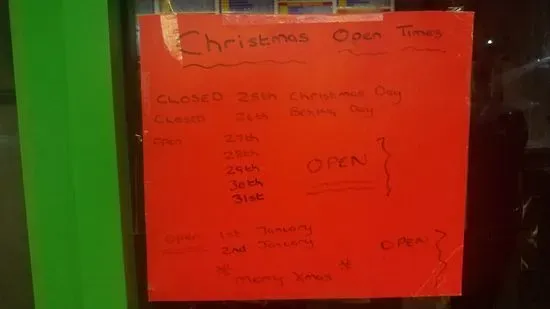 Christmas Open Times
CLOSED 25th Christmas Day
CLOSED 26th Boxing Day
OPEN 27th
28th
29th OPEN
30th
31st
Open 1st January
2nd January OPEN
Merry Xmas